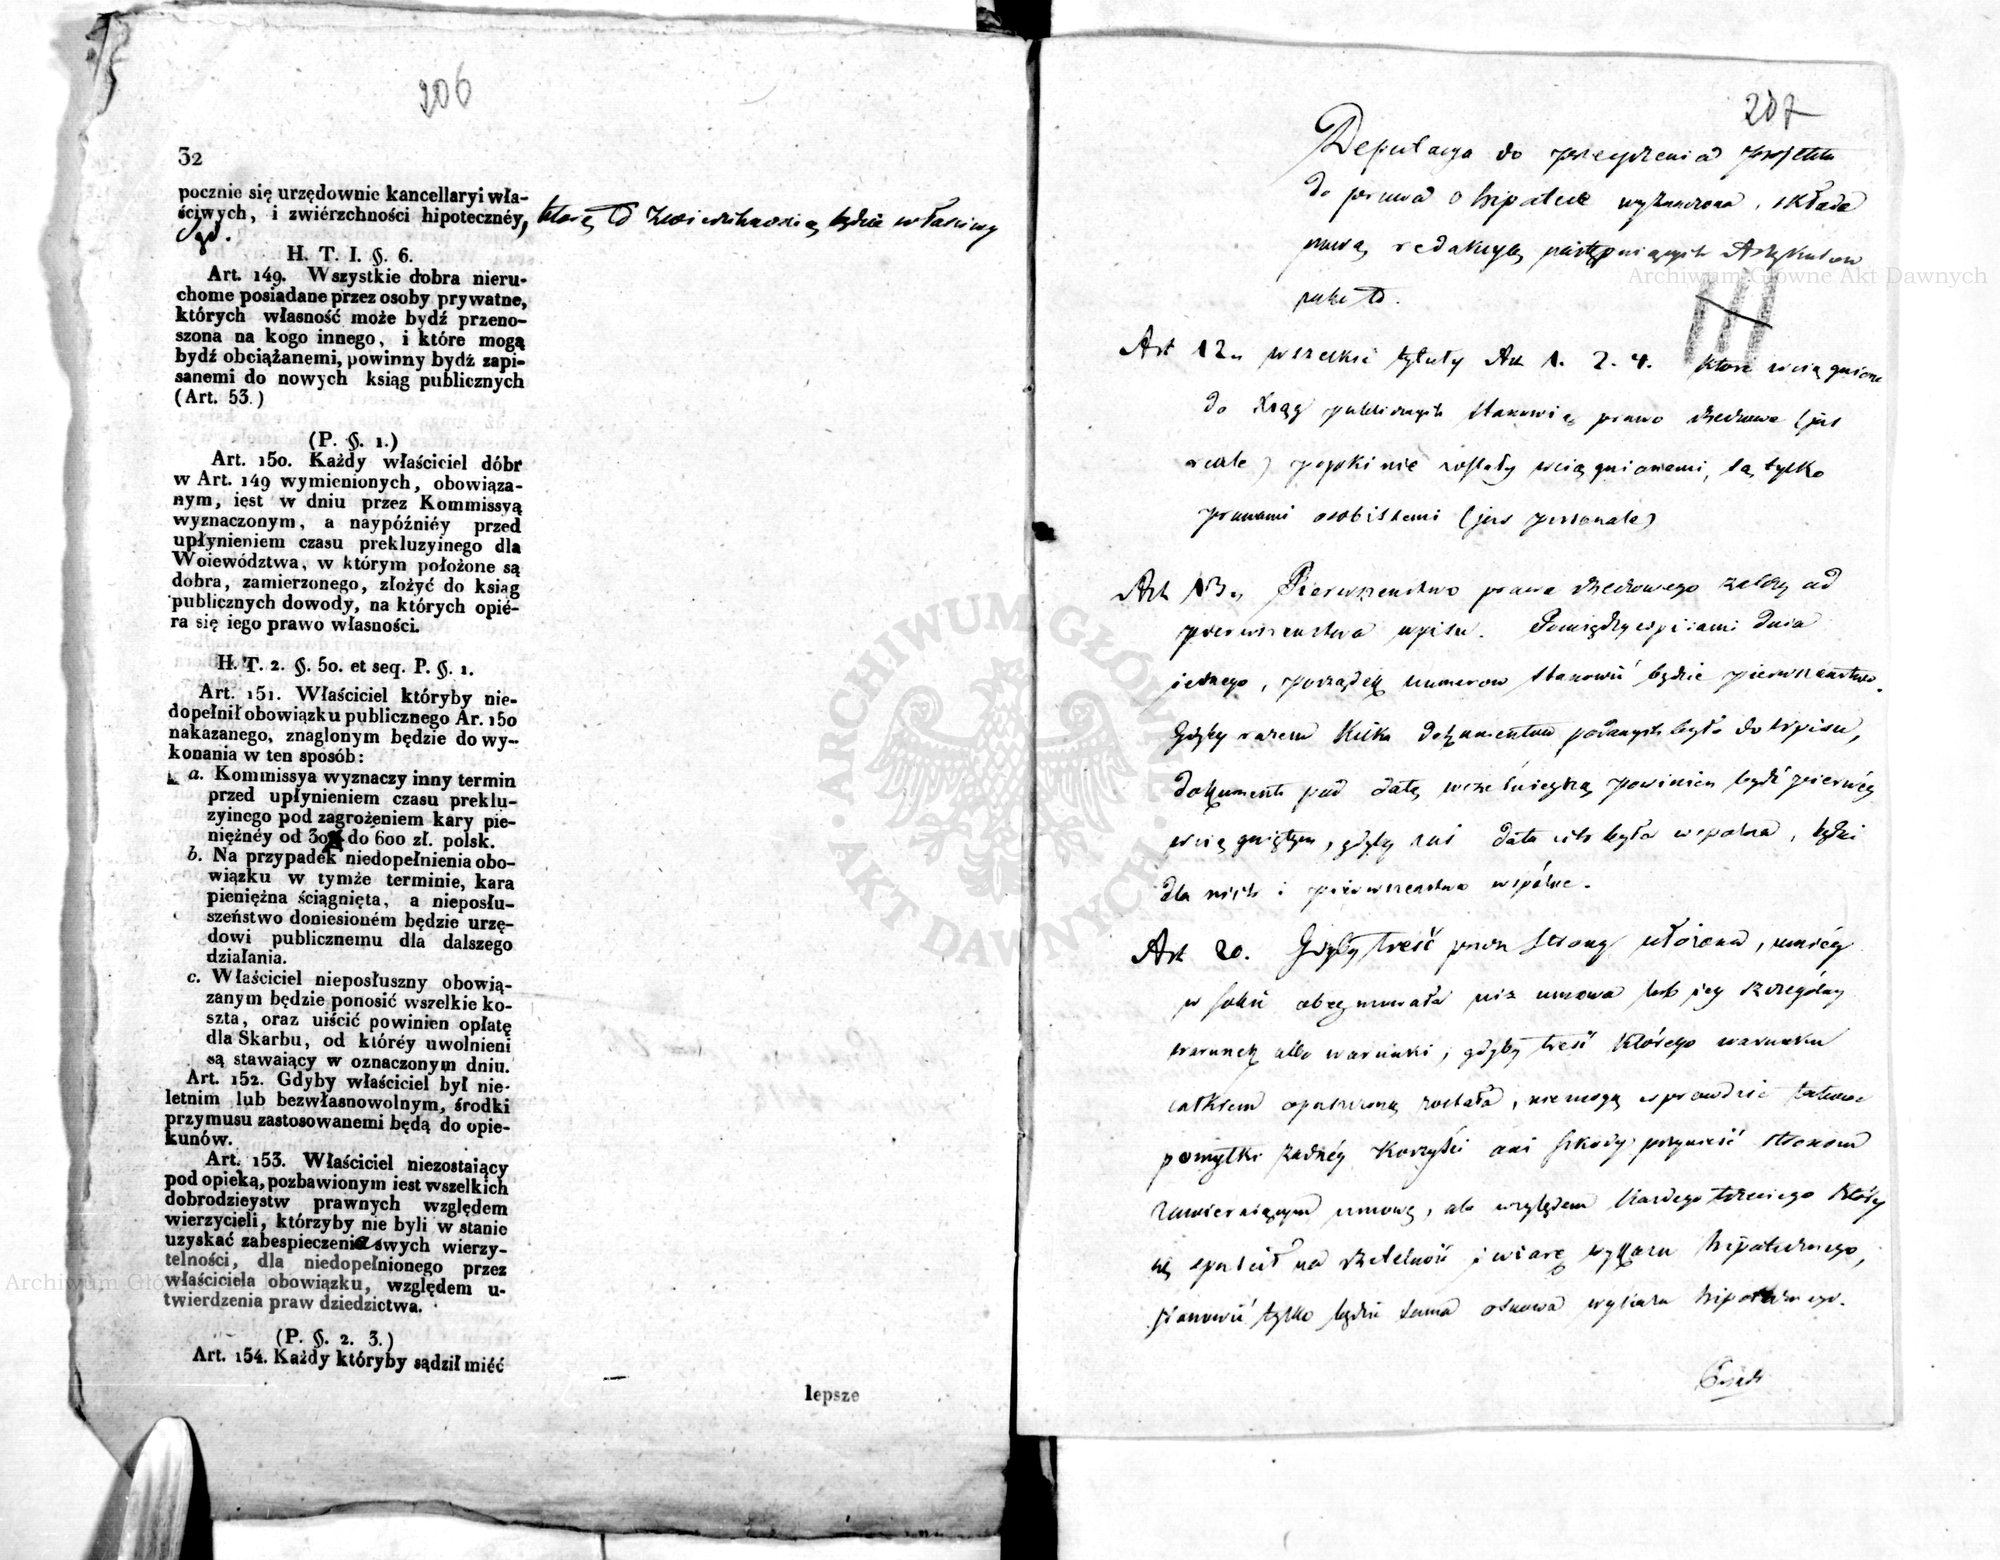 206
32
pocznie się urzędownie kancellaryi wła-
ściwych, i zwiérzchności hipotecznéy, którą to zwierzchnością będzie właściwy
Sąd.
H. T. I. §. 6.
Art. 149. Wszystkie dobra nieru-
chome posiadane przez osoby prywatne,
których własność może bydź przeno-
szona na kogo innego, i które mogą
bydź obciążanemi, powinny bydź zapi-
sanemi do nowych ksiąg publicznych
(Art. 53.)
(P. §. 1.)
Art. 150. Każdy właściciel dóbr
w Art. 149 wymienionych, obowiąza-
nym, iest w dniu przez Kommissyą
wyznaczonym, a naypóźniéy przed
upłynieniem czasu prekluzyinego dla
Woiewództwa, w którym położone są
dobra, zamierzonego, złożyć do ksiąg
publicznych dowody, na których opié-
ra się iego prawo własności.
H. T. 2. §. 50. et seq. P. §. 1.
Art. 151. Właściciel któryby nie-
dopełnił obowiązku publicznego Ar. 150
nakazanego, znaglonym będzie do wy-
konania w ten sposób:
a. Kommissya wyznaczy inny termin
przed upłynieniem czasu preklu-
zyinego pod zagrożeniem kary pie-
niężnéy od 30 do 600 zł. polsk.
b. Na przypadek niedopełnienia obo-
wiązku w tymże terminie, kara
pieniężna ściągnięta, a nieposłu-
szeństwo doniesioném będzie urzę-
dowi publicznemu dla dalszego
działania.
c. Właściciel nieposłuszny obowią-
zanym będzie ponosić wszelkie ko-
szta, oraz uiścić powinien opłatę
dla Skarbu, od któréy uwolnieni
są stawaiący w oznaczonym dniu.
Art. 152. Gdyby właściciel był nie-
letnim lub bezwłasnowolnym, środki
przymusu zastosowanemi będą do opie-
kunów.
Art. 153. Właściciel niezostaiący
pod opieką, pozbawionym iest wszelkich
dobrodzieystw prawnych względem
wierzycieli, którzyby nie byli w stanie
uzyskać zabespieczenia swych wierzy-
telności, dla niedopełnionego przez
właściciela obowiązku, względem u-
twierdzenia praw dziedzictwa.
(P. §. 2. 3.)
Art. 154. Każdy któryby sądził miéć
lepsze
207
Deputacya do przeyrzenia projektu
do prawa o hipotece wyznaczona, składa
nową redakcyą następuiących Artykułów
jako to.
Art 12. wszelkie tytuły Art 1. 2. 4. które wciągnione
do ksiąg publicznych stanowią prawo rzeczowe (jus
reale) popóki nie zostały wciągnionemi, są tylko
prawami osobistemi (jus personale)
Art 13. Pierwszeństwo prawa rzeczowego zależy od
pierwszeństwa wpisu. Pomiędzy wpisami dnia
jednego, porządek numerow stanowić będzie pierwszeństwo.
Gdyby razem kilka dokumentow podanych było do wpisu,
dokument pod datą wcześnieyszą powinien bydź pierwéy
wciągniętym, gdyby zaś data ich była wspolna, będzie
dla nich i pierwszeństwo wspólne.
Art 20. Gdyby treść przez strony ułożona, mniéy
w sobie obeymowała niż umowa lub jey szczególny
warunek albo warunki, gdyby treść którego warunku
całkiem opuszczoną została, niemogą wprawdzie takowe
pomyłki żadnéy korzyści ani szkody przynieść stronom
zawieraiącym umowę, ale względem każdego trzeciego który
się spuścił na rzetelność i wiarę wykazu hipotecznego,
stanowić tylko będzie sama osnowa wykazu hipotecznego.
Archiwum Główne Akt Dawnych
ARCHIWUM GŁÓWNE AKT DAWNYCH